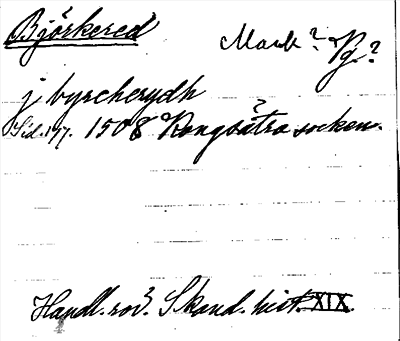 Björkered
Mark? Vg?
j byrcherydh
Sid. 177. 1508 Kongsätra? socken.
Handl. rör. Skand. hist. XIX.